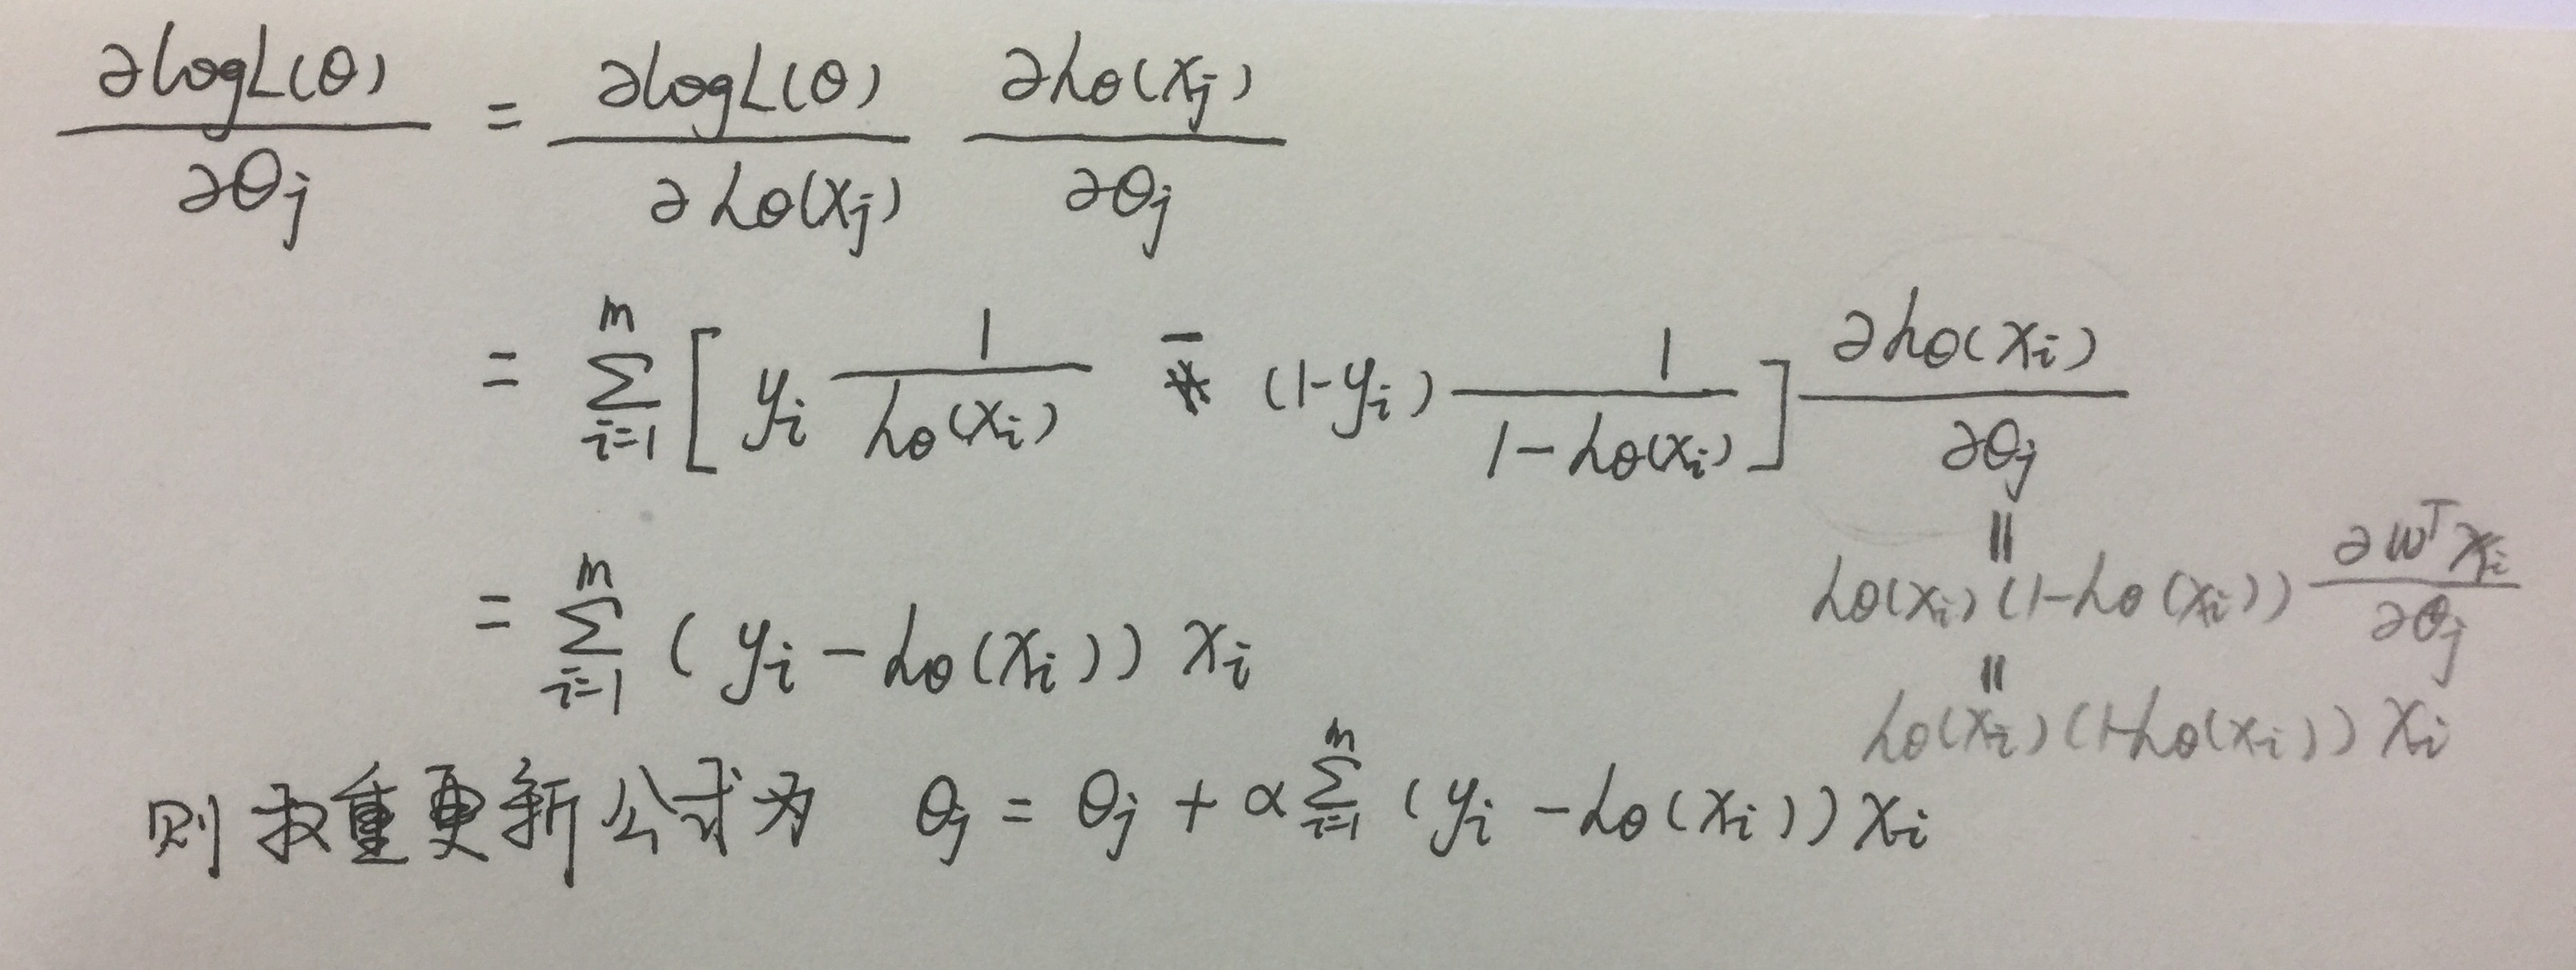 ∂logL(θ)/∂θj = ∂logL(θ)/∂hθ(xj) ∂hθ(xj)/∂θj
= ∑_{i=1}^{m} [ yi 1/hθ(xi) - (1-yi) 1/(1-hθ(xi)) ] ∂hθ(xi)/∂θj
= ∑_{i=1}^{m} ( yi - hθ(xi)) xi
||
hθ(xi)(1-hθ(xi)) ∂w^T xi/∂θj
||
hθ(xi)(1-hθ(xi)) xi
则权重更新公式为 θj = θj + α∑_{i=1}^{m} (yi - hθ(xi)) xi